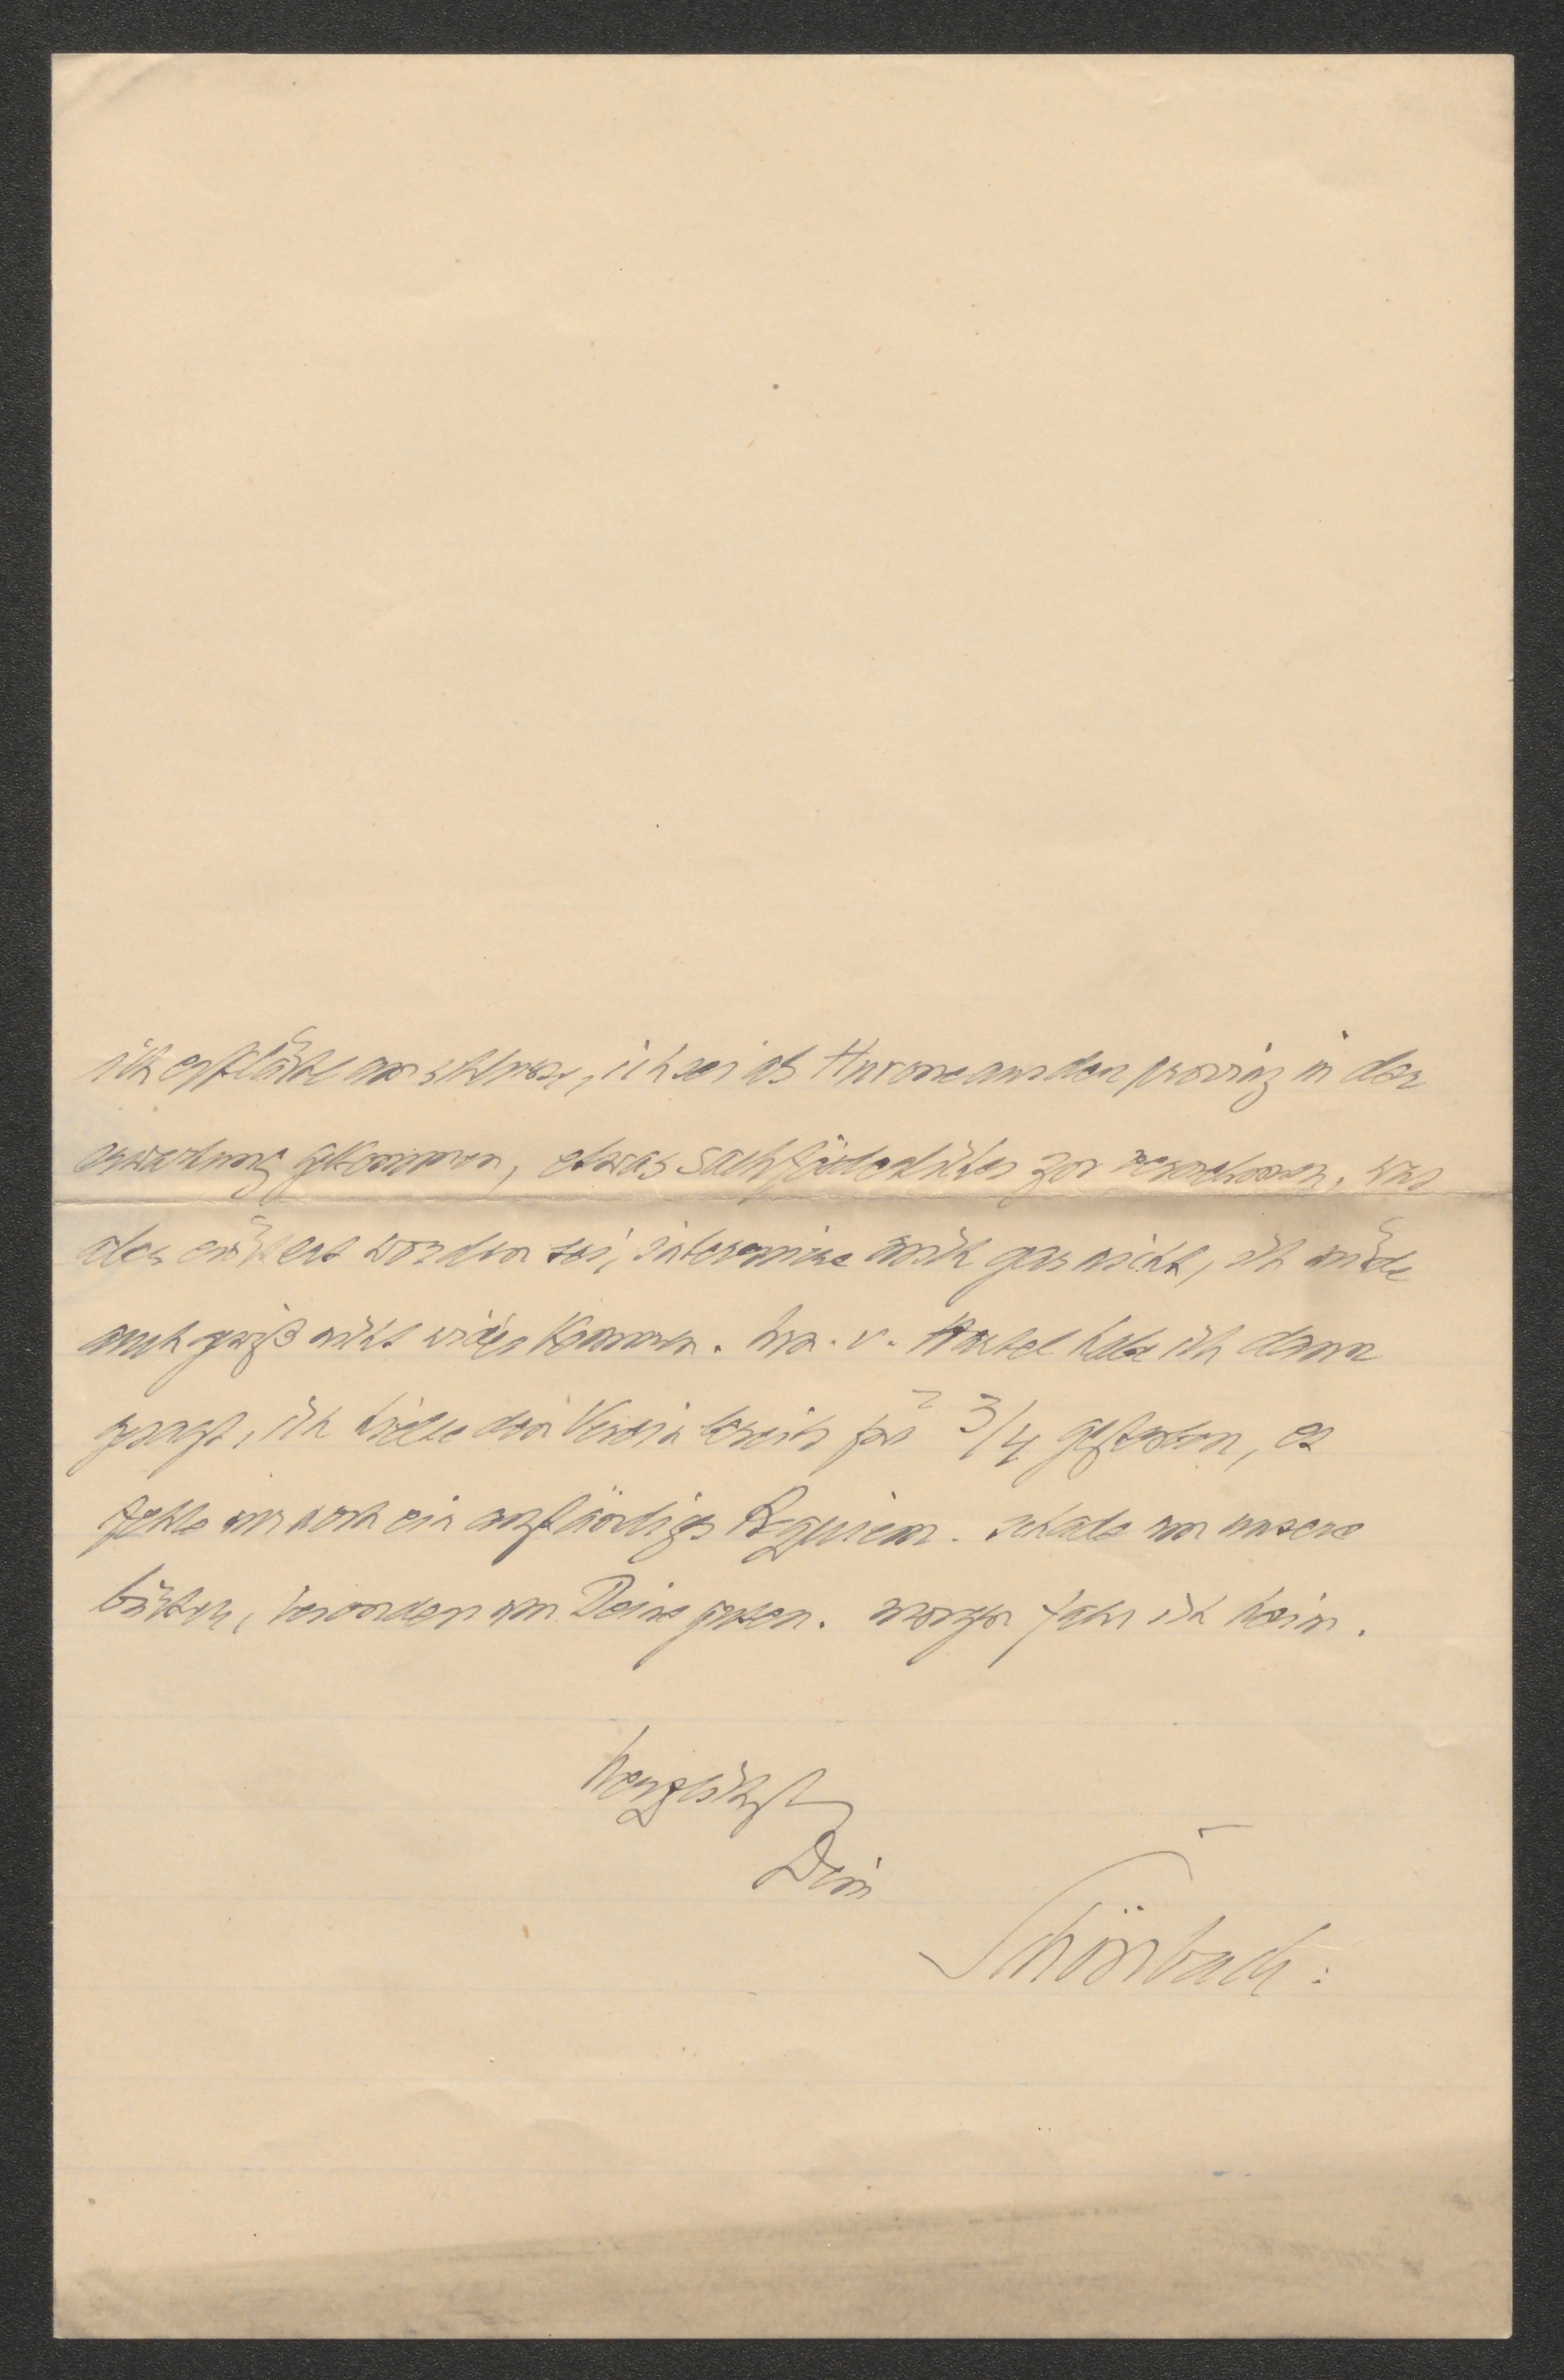 ich erklärte am schlusse, ich sei als Hurone aus der provinz in der
erwartung gekommen, etwas sachförderliches zu vernehmen, was
aber erörtert worden sei, interessire mich gar nicht, ich würde
auch gewiß nicht wider kommen. hrn. v. Hartel habe ich dann
gesagt, ich hielte den Verein bereits für 3/4 gestorben, es
fehle nur noch ein anständiges Requiem. schade um unsere
bücher, besonders um Deine guten. morgen fahr ich heim.
herzlichst
Dein
Schönbach: